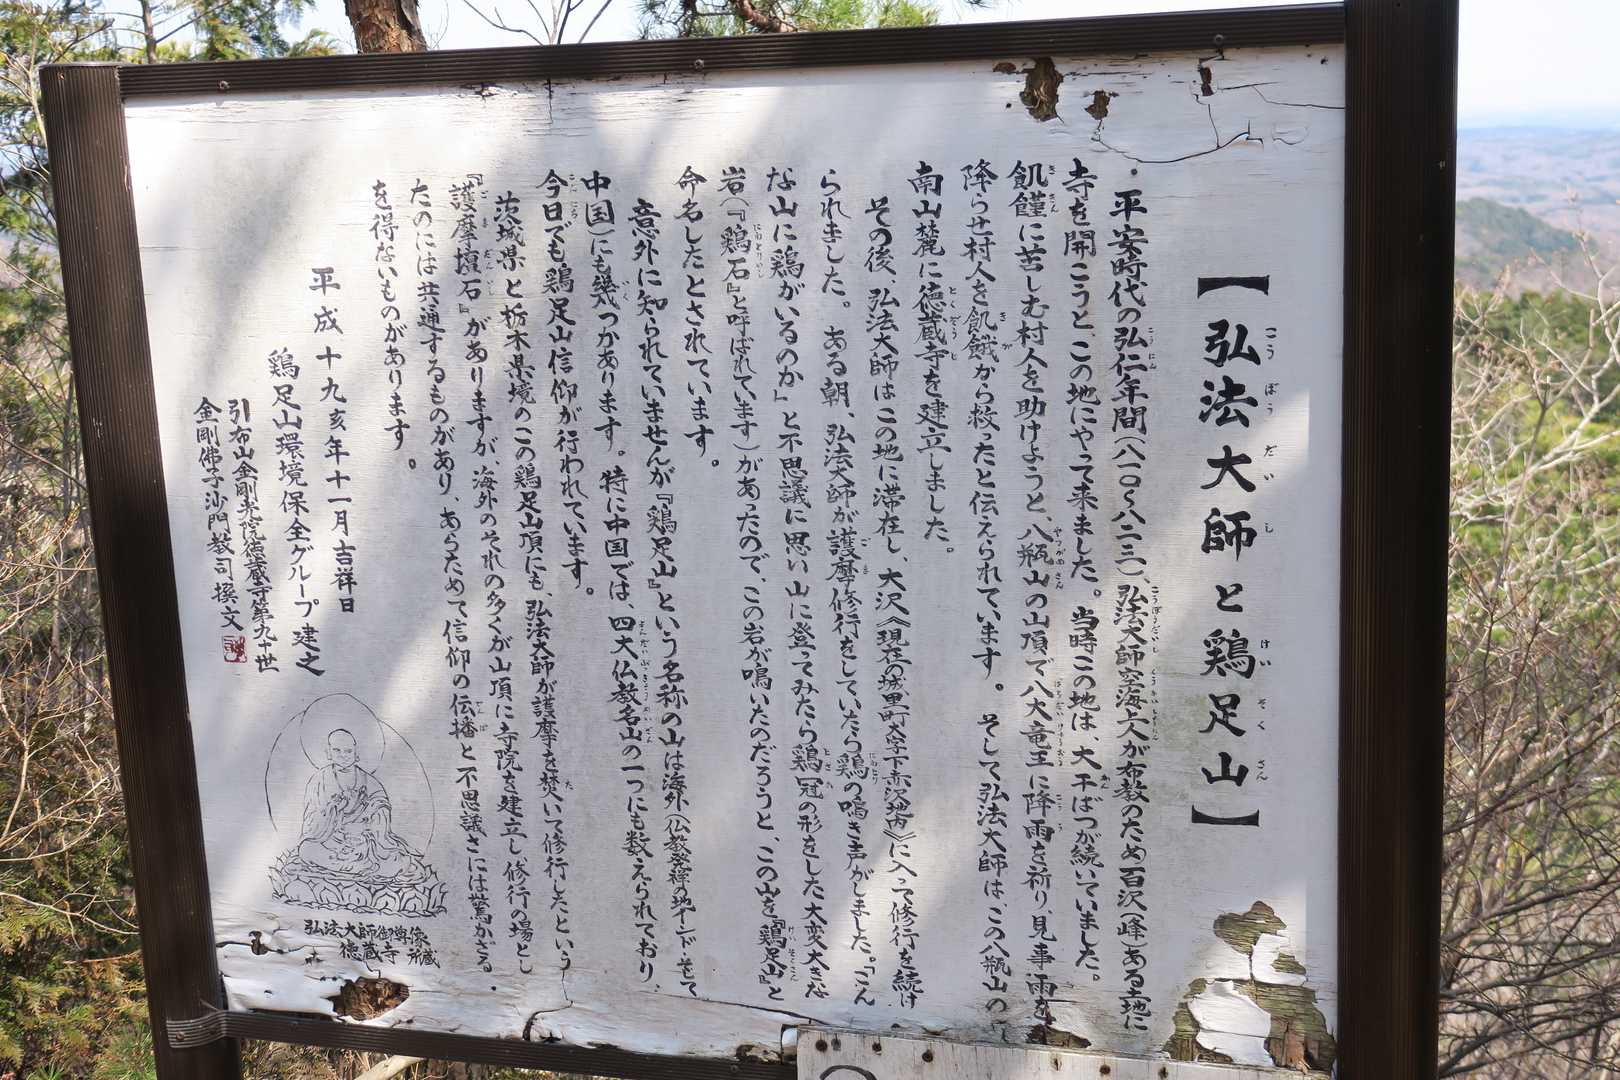 【弘法大師と鶏足山】
平安時代の弘仁年間（八一〇〜八二三）、弘法大師空海上人が布教のため百沢（峰）ある土地に
寺を開こうと、この地にやって来ました。当時この地は、大干ばつが続いていました。
飢饉に苦しむ村人を助けようと、八瓶山の山頂で八大竜王に降雨を祈り、見事雨を
降らせ村人を飢餓から救ったと伝えられています。そして弘法大師は、この八瓶山の
南山麓に徳蔵寺を建立しました。
その後、弘法大師はこの地に滞在し、大沢《現在の城里町大字下赤沢地内》に入って修行を続け
られました。ある朝、弘法大師が護摩修行をしていたら鶏の鳴き声がしました。「こん
な山に鶏がいるのか」と不思議に思い山に登ってみたら鶏冠の形をした大変大きな
岩（『鶏石』と呼ばれています）があったので、この岩が鳴いたのだろうと、この山を『鶏足山』と
命名したとされています。
意外に知られていませんが『鶏足山』という名称の山は海外（仏教発祥の地インド・そして
中国）にも幾つかあります。特に中国では、四大仏教名山の一つにも数えられており、
今日でも鶏足山信仰が行われています。
茨城県と栃木県境のこの鶏足山頂にも、弘法大師が護摩を焚いて修行したという
『護摩壇石』がありますが、海外のそれの多くが山頂に寺院を建立し、修行の場とし
たのには共通するものがあり、あらためて信仰の伝播と不思議さには驚かざる
を得ないものがあります。
平成十九亥年十一月吉祥日
鶏足山環境保全グループ建之
引布山金剛光院徳蔵寺第九十世
金剛佛子沙門教司撰文
弘法大師御尊像
徳蔵寺所蔵